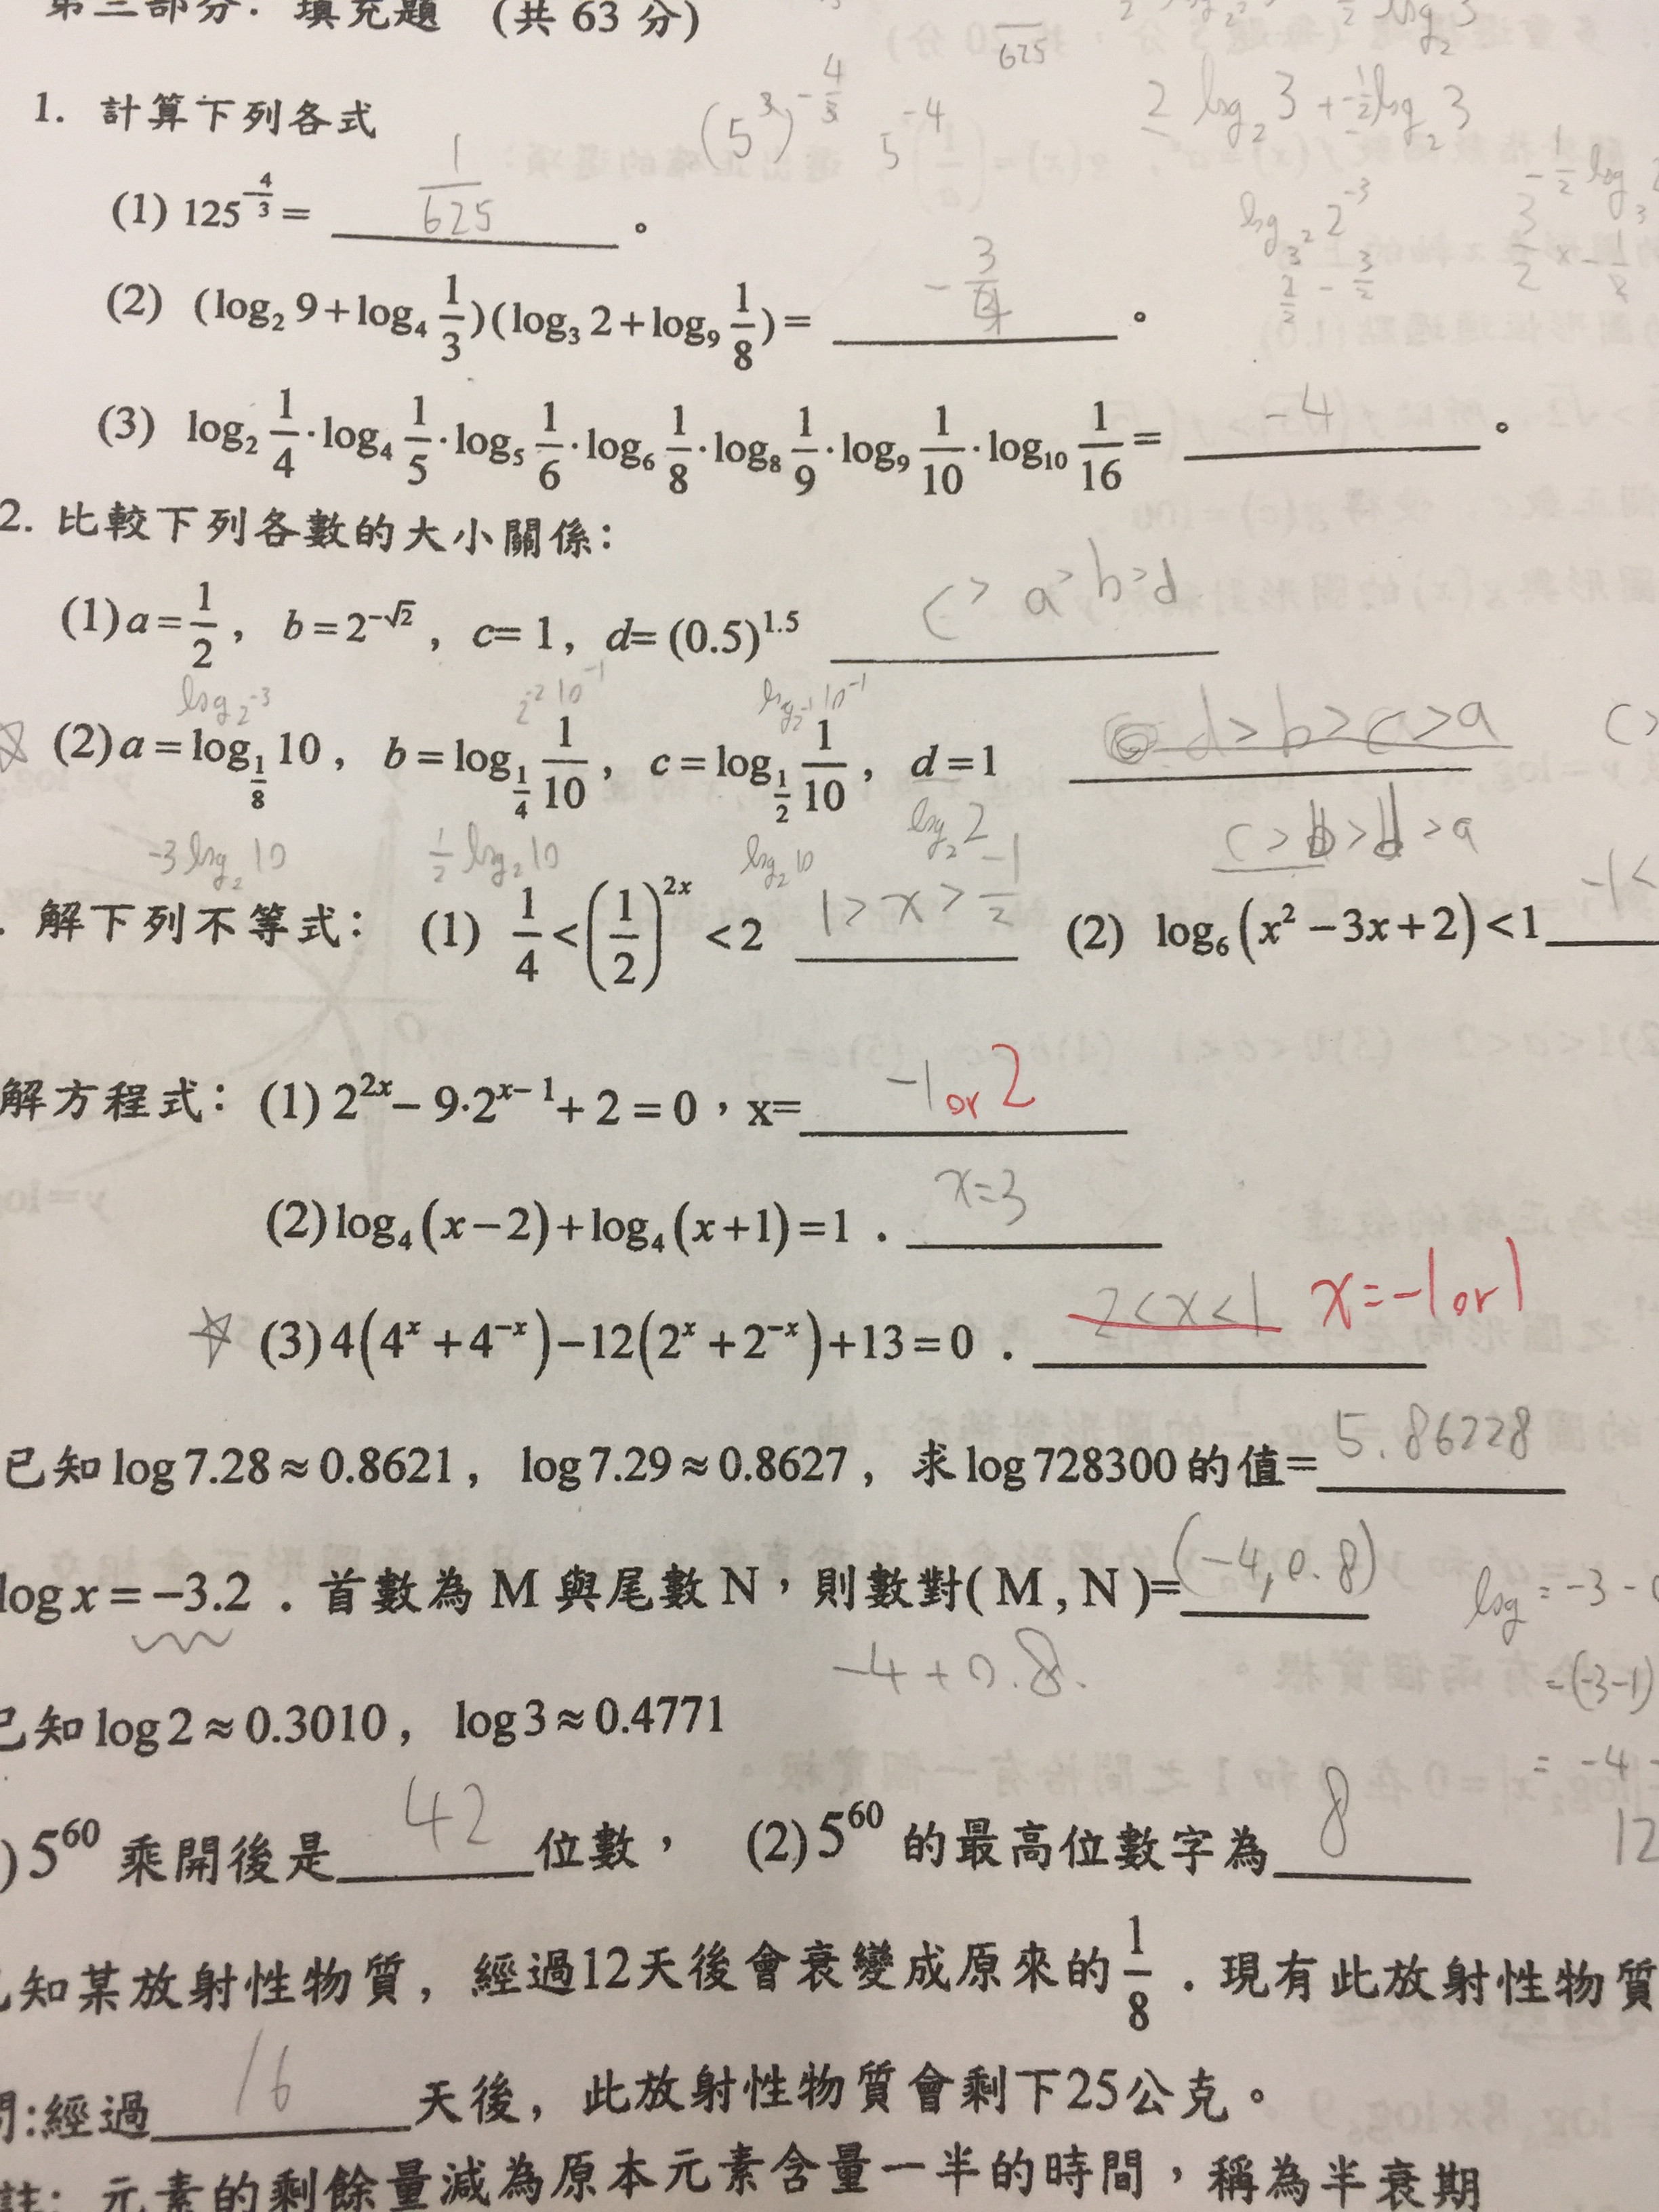 第三部分. 填充題 (共 63 分)
625
2 log₂3 + -½log₂3
1. 計算下列各式
(5³)^(-4/3) 5^-4
(1) 125^(-4/3) = 1/625 。
log_3² 2^-3
(2) (log₂ 9 + log₄ 1/3)(log₃ 2 + log₉ 1/8) = -3/4 。
(3) log₂ 1/4 · log₄ 1/5 · log₅ 1/6 · log₆ 1/8 · log₈ 1/9 · log₉ 1/10 · log₁₀ 1/16 = -4 。
2. 比較下列各數的大小關係：
(1) a = 1/2 , b = 2^(-√2) , c= 1 , d= (0.5)^1.5 c > a > b > d
log 2^-3 2^-2 10^-1 log_2^-1 10^-1
(2) a = log_(1/8) 10 , b = log_(1/4) 1/10 , c = log_(1/2) 1/10 , d = 1 d > b > c > a
log₂2 c > b > d > a
-3 log₂10 ½ log₂10 log₂10
. 解下列不等式： (1) 1/4 < (1/2)^(2x) < 2 1 > x > -1/2 (2) log₆ (x² − 3x + 2) < 1 -1 <
解方程式： (1) 2^(2x) − 9·2^(x−1) + 2 = 0，x= -1 or 2
(2) log₄ (x − 2) + log₄ (x + 1) = 1 . x=3
☆ (3) 4(4^x + 4^(-x)) − 12(2^x + 2^(-x)) + 13 = 0 . 2<x<1 x=-1 or 1
已知 log 7.28 ≈ 0.8621 , log 7.29 ≈ 0.8627 , 求 log 728300 的值= 5.86228
log x = −3.2 . 首數為 M 與尾數 N，則數對( M , N )= (-4, 0.8)
log = -3 -
-4 + 0.8.
= (-3-1)
已知 log 2 ≈ 0.3010 , log 3 ≈ 0.4771
= -4
) 5^60 乘開後是 42 位數， (2) 5^60 的最高位數字為 8
12
已知某放射性物質，經過12天後會衰變成原來的 1/8 . 現有此放射性物質
問:經過 16 天後，此放射性物質會剩下25公克。
註: 元素的剩餘量減為原本元素含量一半的時間，稱為半衰期